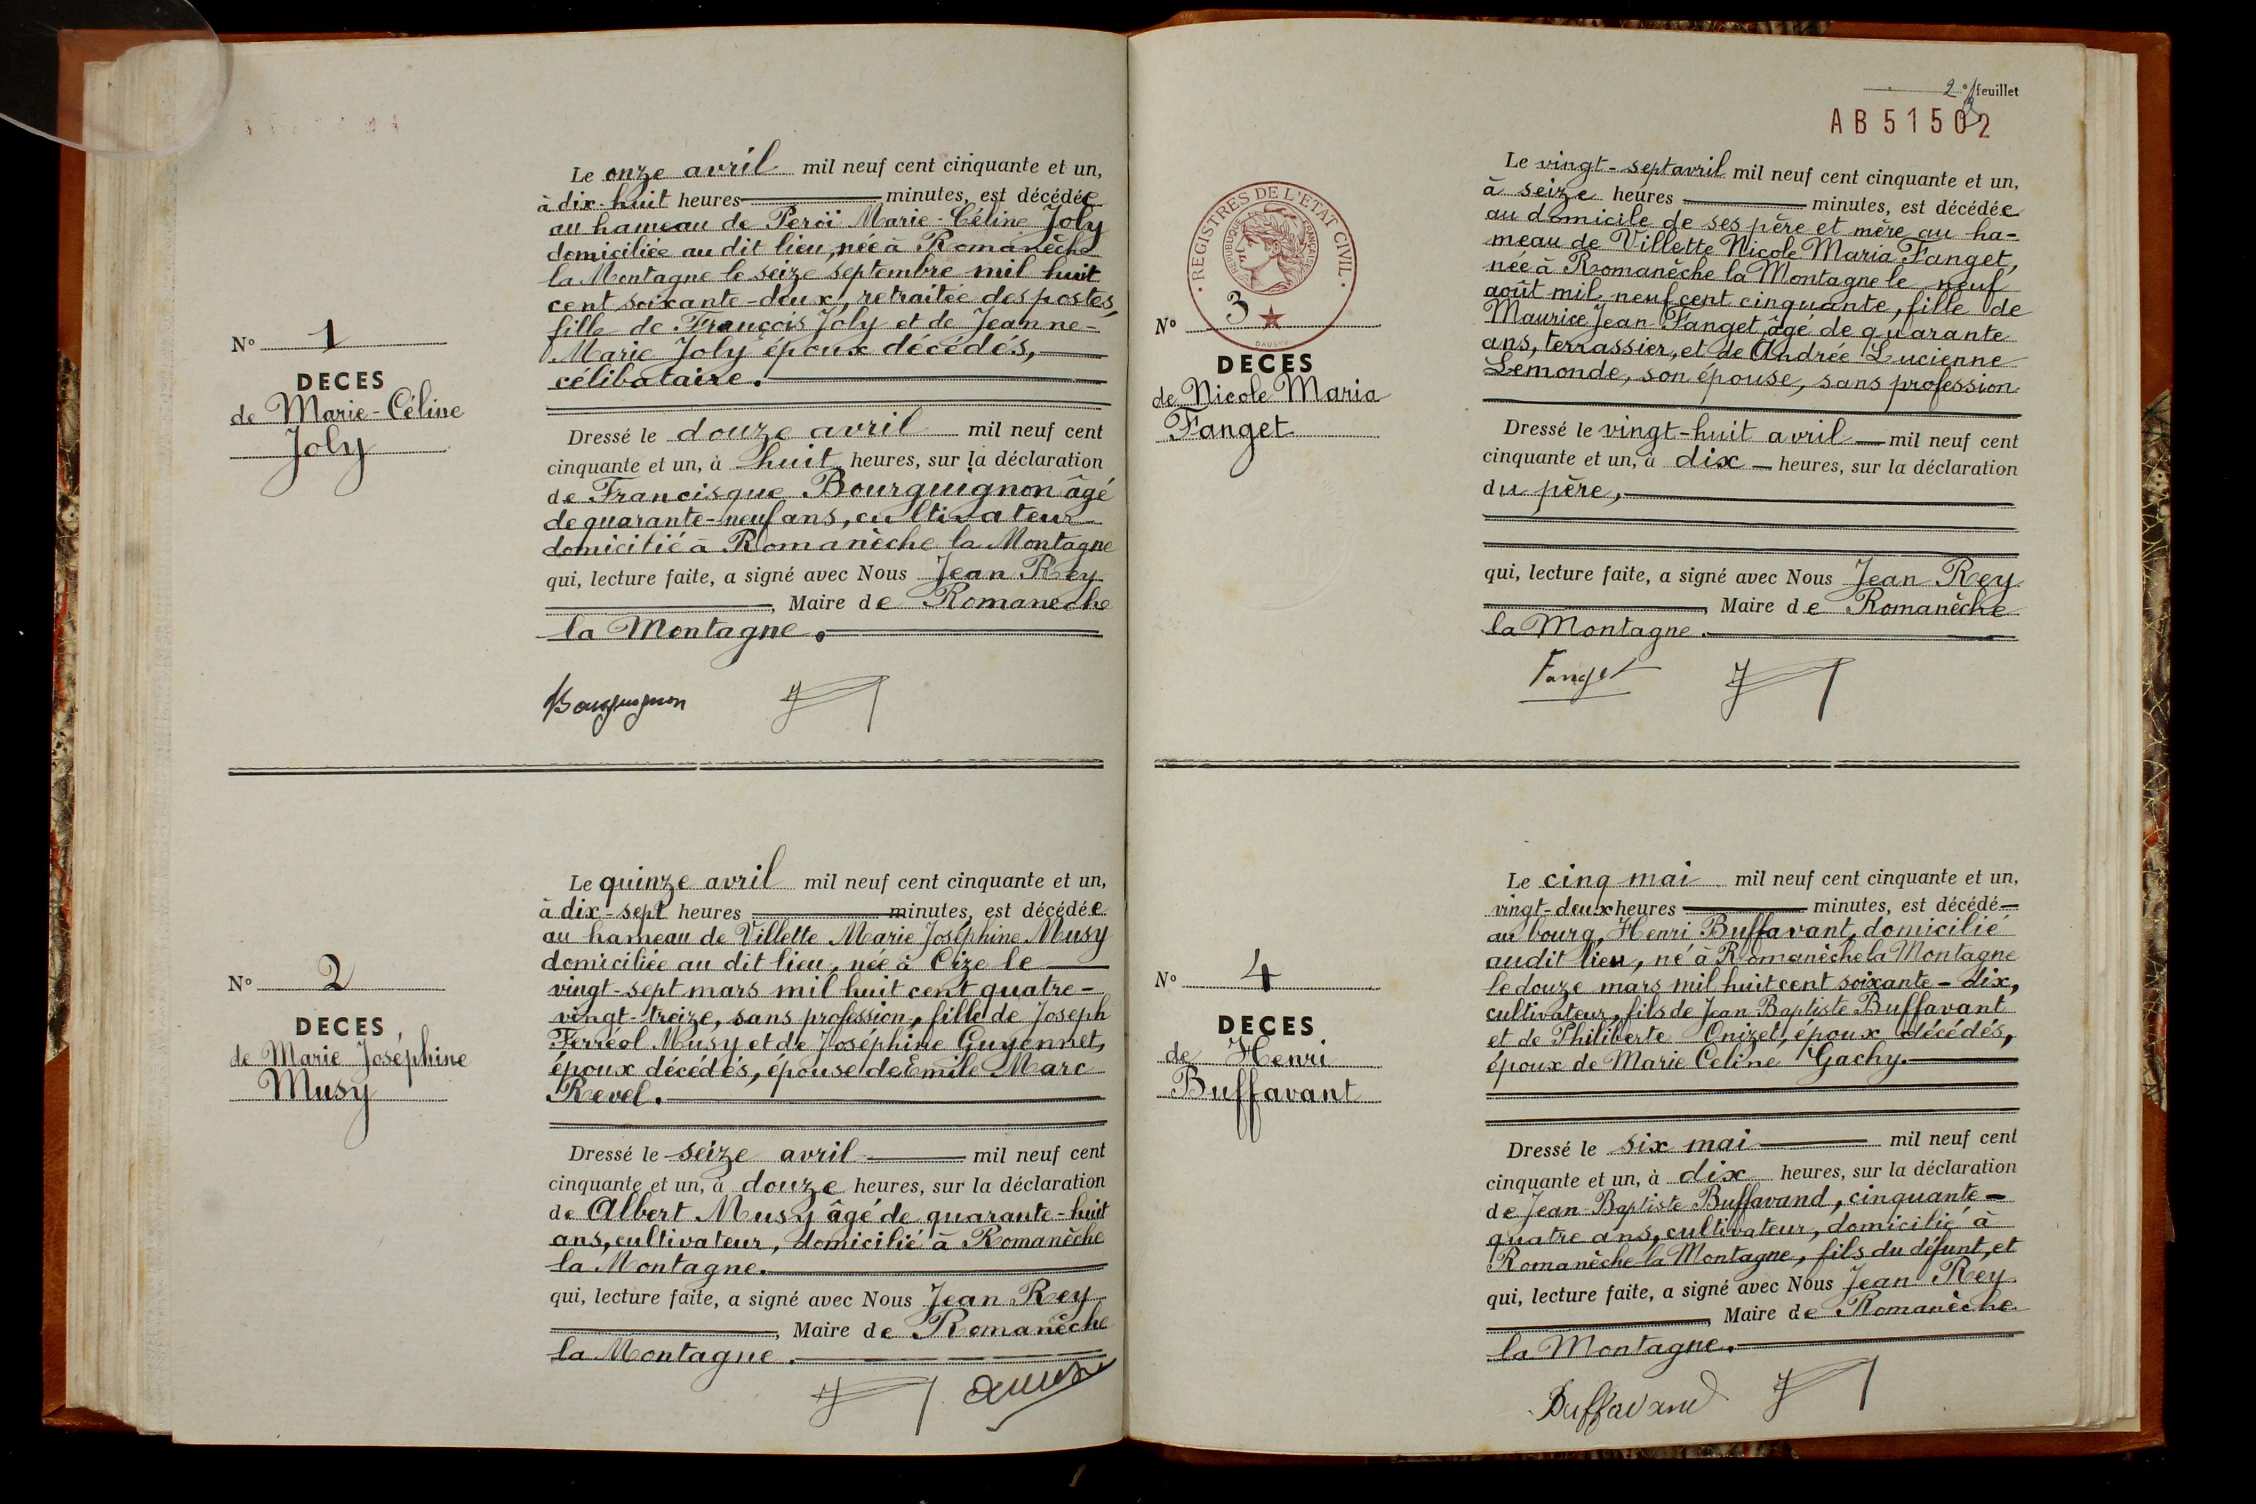 Le onze avril mil neuf cent cinquante et un,
à dix-huit heures minutes, est décédée
au hameau de Peroï Marie-Céline Joly
domiciliée au dit lieu, née à Romanèche
la Montagne le seize septembre mil huit
cent soixante-deux, retraitée des postes,
fille de François Joly et de Jeanne-
Marie Joly époux décédés,
célibataire.
N° 1
DECES
de Marie-Céline
Joly
Dressé le douze avril mil neuf cent
cinquante et un, à huit heures, sur la déclaration
de Francisque Bourguignon âgé
de quarante-neuf ans, cultivateur
domicilié à Romanèche la Montagne
qui, lecture faite, a signé avec Nous Jean Rey
, Maire de Romanèche
la Montagne.
Bourguignon
Le quinze avril mil neuf cent cinquante et un,
à dix-sept heures minutes, est décédée
au hameau de Villette Marie Joséphine Musy
domiciliée au dit lieu, née à Cize le
vingt-sept mars mil huit cent quatre-
vingt-treize, sans profession, fille de Joseph
Ferréol Musy et de Joséphine Guyennet,
époux décédés, épouse de Emile Marc
Revel.
N° 2
DECES
de Marie Joséphine
Musy
Dressé le seize avril mil neuf cent
cinquante et un, à douze heures, sur la déclaration
de Albert Musy âgé de quarante-huit
ans, cultivateur, domicilié à Romanèche
la Montagne.
qui, lecture faite, a signé avec Nous Jean Rey
, Maire de Romanèche
la Montagne.
2e feuillet
AB51502
REGISTRES DE L'ETAT CIVIL
REPUBLIQUE FRANÇAISE
Le vingt-sept avril mil neuf cent cinquante et un,
à seize heures minutes, est décédée
au domicile de ses père et mère au ha-
meau de Villette Nicole Maria Fanget,
née à Romanèche la Montagne le neuf
août mil neuf cent cinquante, fille de
Maurice Jean Fanget âgé de quarante
ans, terrassier, et de Andrée Lucienne
Lemonde, son épouse, sans profession
N° 3
DECES
de Nicole Maria
Fanget
Dressé le vingt-huit avril mil neuf cent
cinquante et un, à dix heures, sur la déclaration
du père,
qui, lecture faite, a signé avec Nous Jean Rey
, Maire de Romanèche
la Montagne.
Fanget
Le cinq mai mil neuf cent cinquante et un,
vingt-deux heures minutes, est décédé
au bourg, Henri Buffavant, domicilié
audit lieu, né à Romanèche la Montagne
le douze mars mil huit cent soixante-dix,
cultivateur, fils de Jean Baptiste Buffavant
et de Philiberte Onizet, époux décédés,
époux de Marie Celine Gachy.
N° 4
DECES
de Henri
Buffavant
Dressé le six mai mil neuf cent
cinquante et un, à dix heures, sur la déclaration
de Jean-Baptiste Buffavand, cinquante-
quatre ans, cultivateur, domicilié à
Romanèche la Montagne, fils du défunt, et
qui, lecture faite, a signé avec Nous Jean Rey
, Maire de Romanèche
la Montagne.
Buffavand